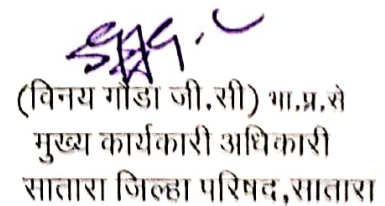 (विनय गौडा जी.सी) भा.प्र.से
मुख्य कार्यकारी अधिकारी
सातारा जिल्हा परिषद,सातारा